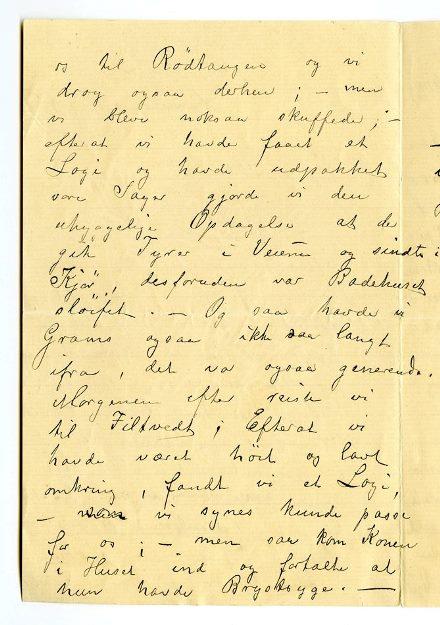 os til Rödtangen og vi
drog ogsaa derhen; – men
vi bleve noksaa skuffede; –
efterat vi havde faaet et
Logi og havde udpakket
vore Sager gjorde vi den
uhyggelige Opdagelse at de
gik Tyrer i Veiene og sindte i
Kjör, desforuden var Badehuset
slöifet. – Og saa havde vi
Grams ogsaa ikke saa langt
ifra, det var ogsaa generende.
Morgenen efter reiste vi
til Filtvedt; Efterat vi
havde været höit og lavt
omkring, fandt vi et Logi,
– som vi synes kunde passe
for os; – men saa kom Konen
i Huset ind og fortalte at
hun havde Brystsyge. –